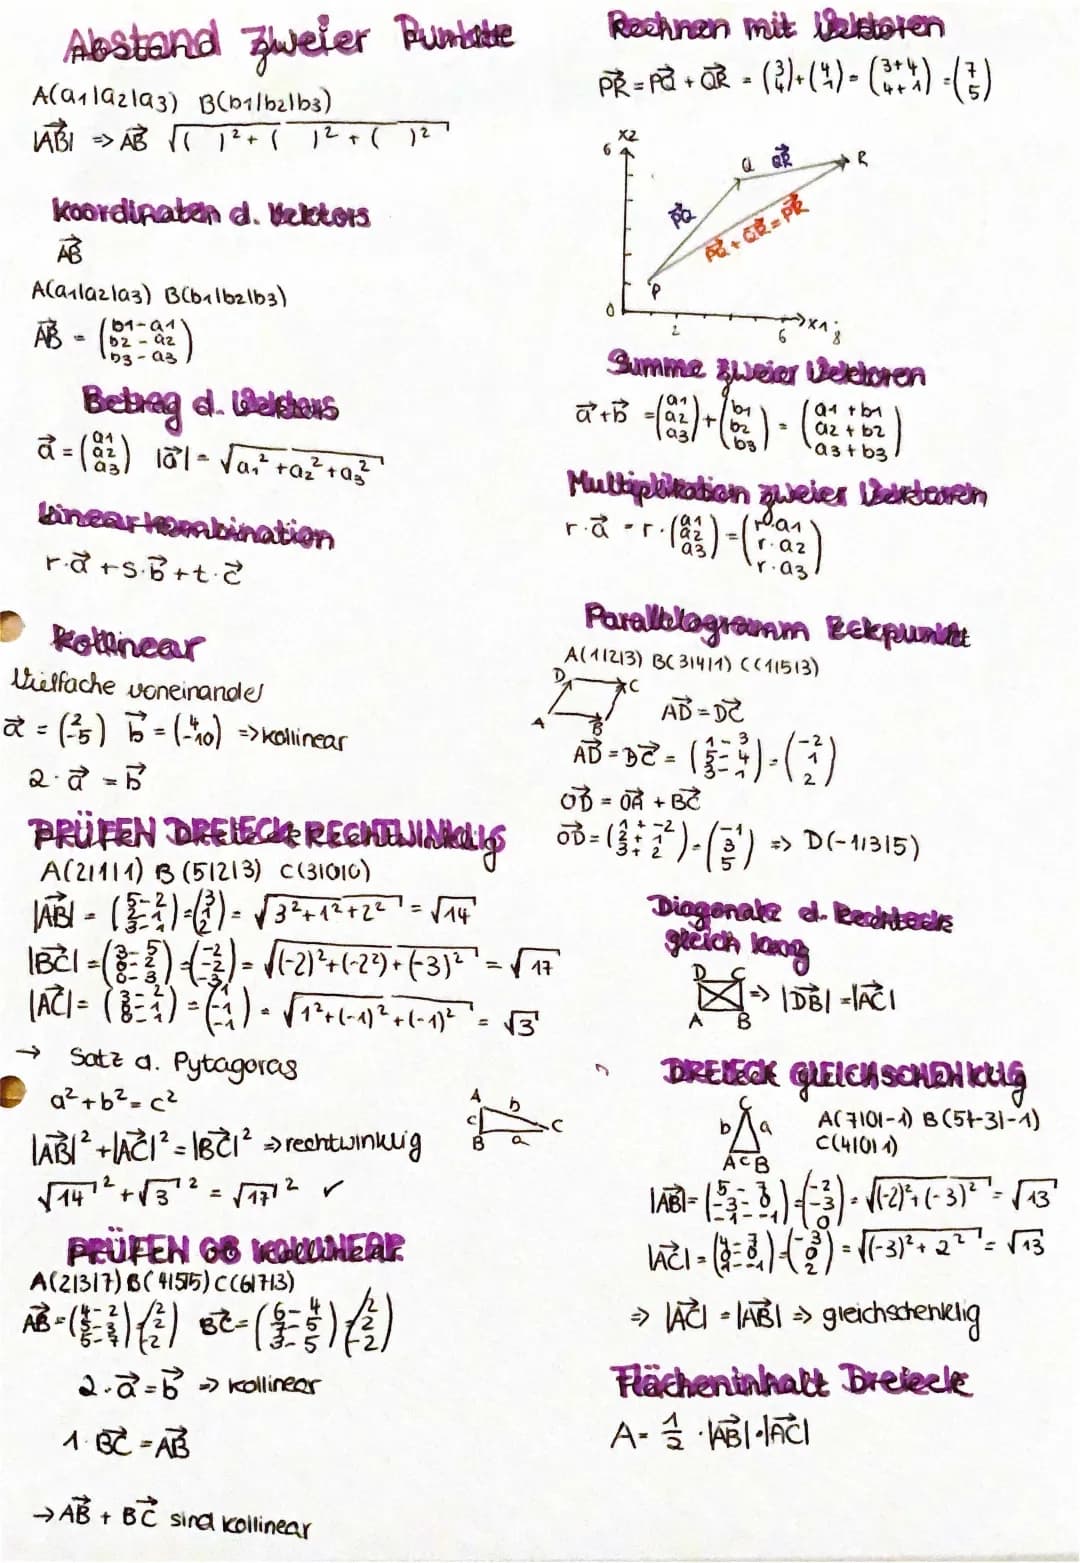 Abstand zweier Punkte
A(a1|a2|a3) B(b1|b2|b3)
|AB| => AB √( )² + ( )² + ( )²
Koordinaten d. Vektors
AB
A(a1|a2|a3) B(b1|b2|b3)
AB = (b1-a1 b2-a2 b3-a3)
Betrag d. Vektors
a = (a1 a2 a3) |a| = √a1² + a2² + a3²
Linearkombination
r·a + s·b + t·c
Kollinear
Vielfache voneinander
a = (2 -5) b = (4 -10) => kollinear
2·a = b
PRÜFEN DREIECK RECHTWINKLIG
A(2|1|1) B(5|2|3) C(3|0|0)
|AB| = (5-2 2-1 3-1) = (3 1 2) = √3²+1²+2² = √14
|BC| = (3-5 0-2 0-3) = (-2 -2 -3) = √(-2)²+(-2²)+(-3)² = √17
|AC| = (3-2 0-1 0-1) = (1 -1 -1) = √1²+(-1)²+(-1)² = √3
→ Satz d. Pytagoras
a² + b² = c²
A b c B a C
|AB|² + |AC|² = |BC|² => rechtwinklig
√14² + √3² = √17² ✓
PRÜFEN OB KOLLINEAR
A(2|3|7) B(4|5|5) C(6|7|3)
AB = (4-2 5-3 5-7) = (2 2 -2) BC = (6-4 7-5 3-5) = (2 2 -2)
2·a = b => kollinear
1·BC = AB
→ AB + BC sind kollinear
Rechnen mit Vektoren
PR = PQ + QR = (3 4) + (4 1) = (3+4 4+1) = (7 5)
x2
6
Q QR R
PQ
PQ + QR = PR
P
0 2 6 x1 8
Summe zweier Vektoren
a + b = (a1 a2 a3) + (b1 b2 b3) = (a1+b1 a2+b2 a3+b3)
Multiplikation zweier Vektoren
r·a = r·(a1 a2 a3) = (r·a1 r·a2 r·a3)
Parallelogramm Eckpunkt
A(1|2|3) B(3|4|1) C(1|5|3)
D C A B
AD = DC
AD = BC = (1-3 5-4 3-1) = (-2 1 2)
OD = OA + BC
OD = (1+-2 2+1 3+2) = (-1 3 5) => D(-1|3|5)
Diagonale d. Rechtecks
gleich lang
D C A B => |DB| = |AC|
DREIECK GLEICHSCHENKLIG
C b a A c B
A(7|0|-1) B(5|-3|-1)
C(4|0|1)
|AB| = (5-7 -3-0 -1--1) = (-2 -3 0) = √(-2)²+(-3)² = √13
|AC| = (4-7 0-0 1--1) = (-3 0 2) = √(-3)²+2² = √13
=> |AC| = |AB| => gleichschenklig
Flächeninhalt Dreieck
A = 1/2 · |AB|·|AC|